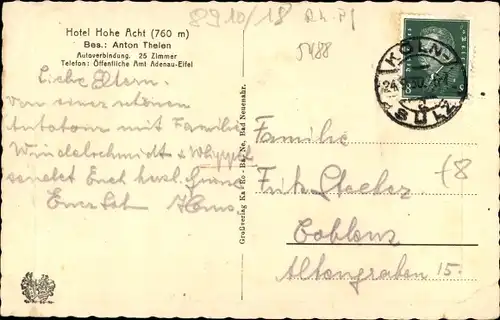 8910/18 Rh.Pf
5488
Hotel Hohe Acht (760 m)
Bes.: Anton Thelen
Autoverbindung. 25 Zimmer
Telefon: Öffentliche Amt Adenau-Eifel
KÖLN-
SÜLZ
Liebe Eltern.
Von einer schönen
Autotour mit Familie
Windelschmidt &
sendet Euch herzl. Grüsse
Euer Sohn Hans
Großverlag Ka-Ro-Ba-Ne, Bad Neuenahr.
Familie
Fritz
Coblenz
Altengraben 15.